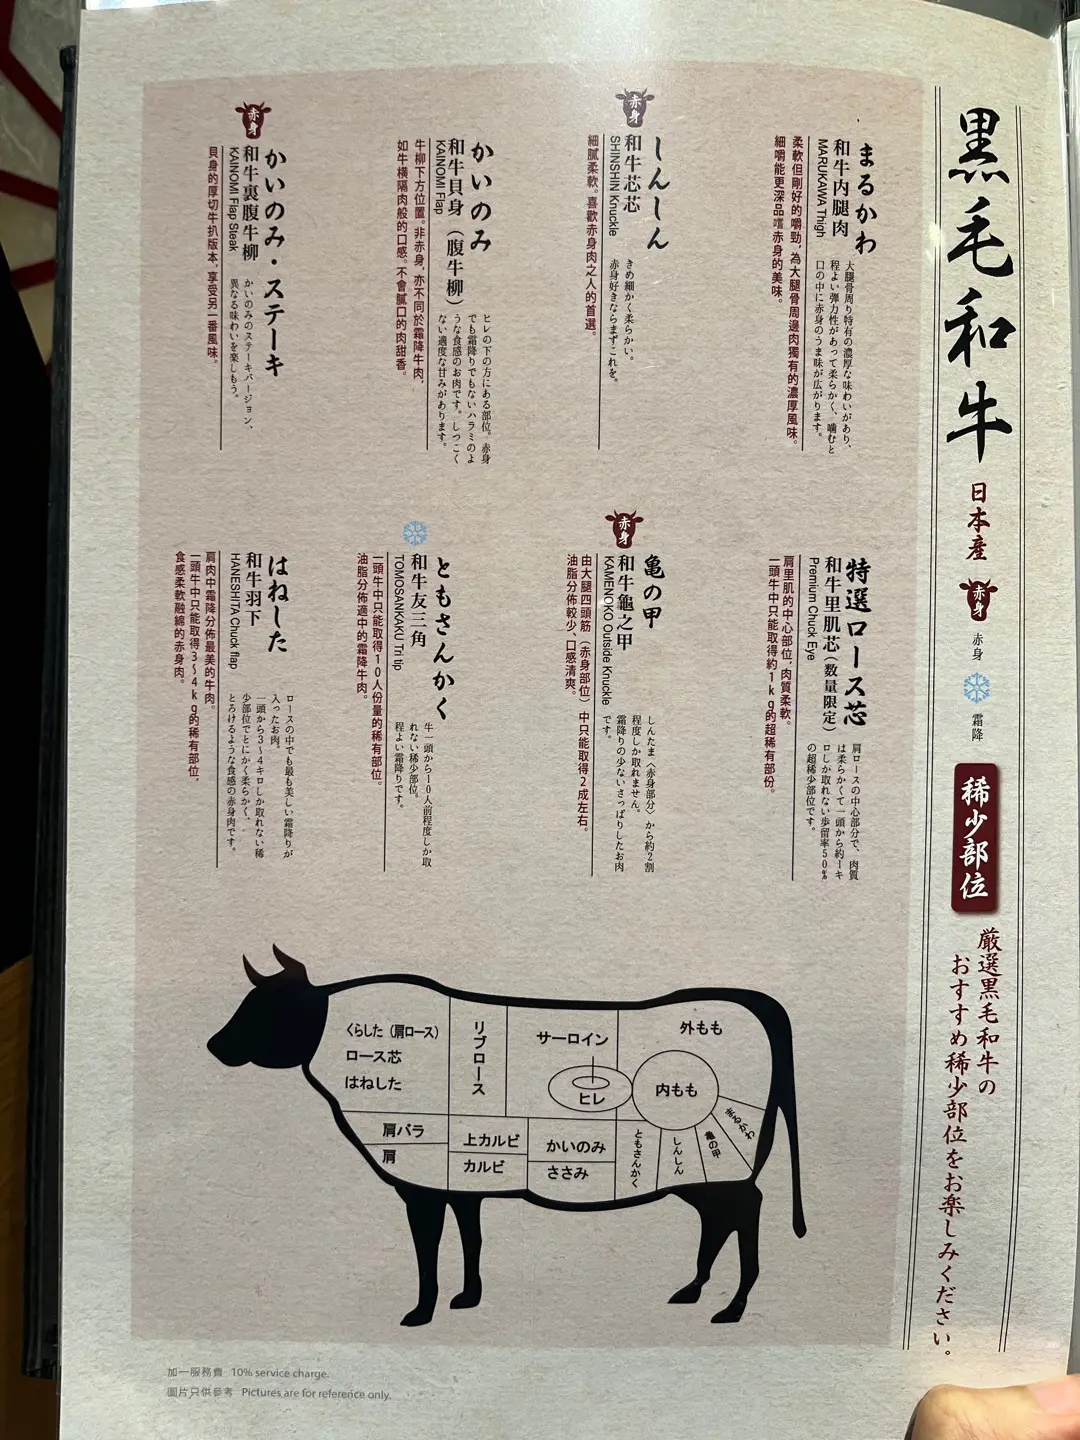 黒毛和牛
日本産
赤身
赤身
霜降
稀少部位
厳選黒毛和牛の
おすすめ稀少部位をお楽しみください。
まるかわ
和牛内腿肉
MARUKAWA Thigh
大腿骨周り特有の濃厚な味わいがあり、
程よい弾力性があって柔らかく、噛むと
口の中に赤身のうま味が広がります。
柔軟但剛好的嚼勁，為大腿骨周邊肉獨有的濃厚風味。
細嚼能更深品嚐赤身的美味。
赤身
しんしん
和牛芯芯
SHINSHIN Knuckle
きめ細かく柔らかい。
赤身好きならまずこれを。
細膩柔軟。喜歡赤身肉之人的首選。
かいのみ
和牛貝身（腹牛柳）
KAINOMI Flap
ヒレの下の方にある部位。赤身
でも霜降りでもないハラミのよ
うな食感のお肉です。しつこく
ない適度な甘みがあります。
牛柳下方位置。非赤身，亦不同於霜降牛肉，
如牛橫隔肉般的口感。不會膩口的肉甜香。
赤身
かいのみ・ステーキ
和牛裏腹牛柳
KAINOMI Flap Steak
かいのみのステーキバージョン、
異なる味わいを楽しもう。
貝身的厚切牛扒版本，享受另一番風味。
特選ロース芯
和牛里肌芯（数量限定）
Premium Chuck Eye
肩ロースの中心部分で、肉質
は柔らかくて一頭から約一キ
ロしか取れない歩留率50％
の超稀少部位です。
肩里肌的中心部位，肉質柔軟。
一頭牛中只能取得約1kg的超稀有部份。
赤身
亀の甲
和牛龜之甲
KAMENOKO Outside Knuckle
しんたま〈赤身部分〉から約2割
程度しか取れません。
霜降りの少ないさっぱりしたお肉
です。
由大腿四頭筋（赤身部位）中只能取得2成左右。
油脂分佈較少、口感清爽。
ともさんかく
和牛友三角
TOMOSANKAKU Tri tip
牛一頭から10人前程度しか取
れない稀少部位。
程よい霜降りです。
一頭牛中只能取得10人份量的稀有部位。
油脂分佈適中的霜降牛肉。
はねした
和牛羽下
HANESHITA Chuck flap
ロースの中でも最も美しい霜降りが
入ったお肉。
一頭から3～4キロしか取れない稀
少部位でとにかく柔らかく、
とろけるような食感の赤身肉です。
肩肉中霜降分佈最美的牛肉。
一頭牛中只能取得3～4kg的稀有部位，
食感柔軟融綿的赤身肉。
くらした（肩ロース）
ロース芯
はねした
リブロース
サーロイン
ヒレ
外もも
内もも
肩バラ
肩
上カルビ
カルビ
かいのみ
ささみ
ともさんかく
しんしん
亀の甲
まるかわ
加一服務費 10% service charge.
圖片只供參考 Pictures are for reference only.